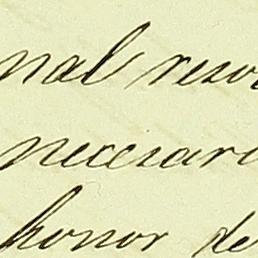 nal reso
necesari
honor de